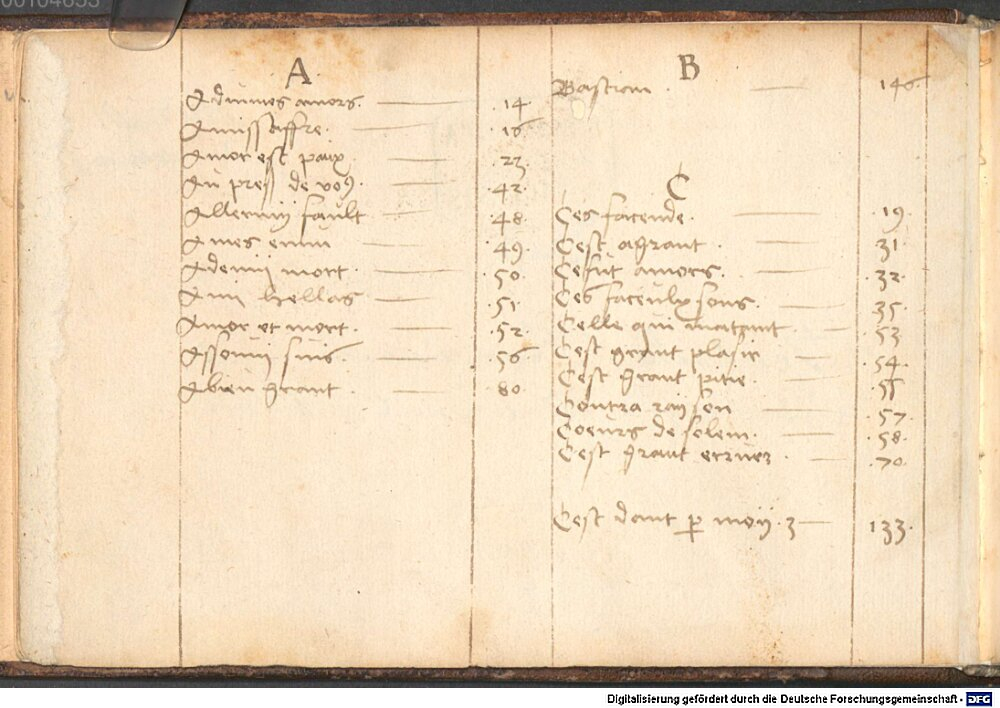 00104653
A
Adiumes amors. 14
Amisstaffre. 16
Amor est paix. 23
Au pres de vo9. 42
Allermy fault 48
Ames emm 49
Ademy mort. 50
Ami hellas 51
Amor et mort. 52
Assouuy suis. 56
Abien grant 80
B
Bastian. 146
C
Ces facende. 19
Cest agrant. 31
Cefut amors. 32
Ces faceulx sons. 35
Celle qui matzint. 53
Cest grant plasir 54
Cest grant pitie. 55
Contra raison 57
Coeurs de solem. 58
Cest grant erruez 70
Cest dont p moy. 3 133
Digitalisierung gefördert durch die Deutsche Forschungsgemeinschaft - DFG